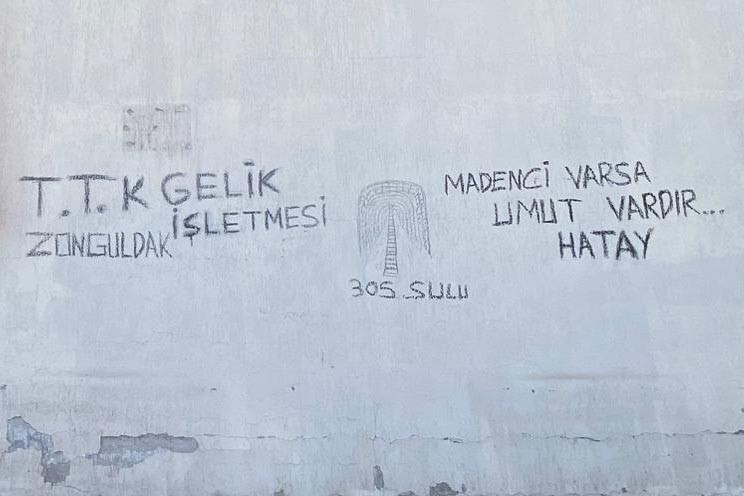 T.T.K GELİK
İŞLETMESİ
ZONGULDAK
305 SULU
MADENCİ VARSA
UMUT VARDIR...
HATAY